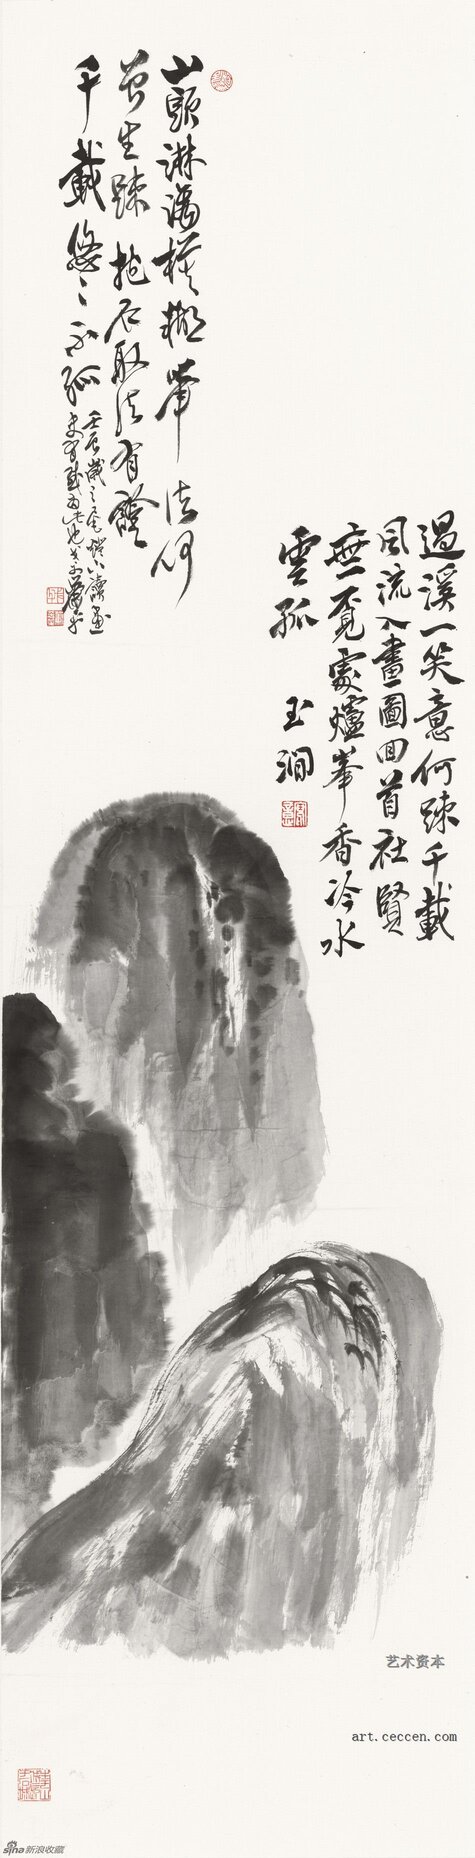 山頭淋漓模糊筆法何
曾生踈 取法有證
千載悠々不孤
壬辰歲之
過溪一笑意何踈千載
風流入畫圖回首社賢
無覓處爐峯香冷水
雲孤 玉澗
艺术资本
art.ceccen.com
sina新浪收藏